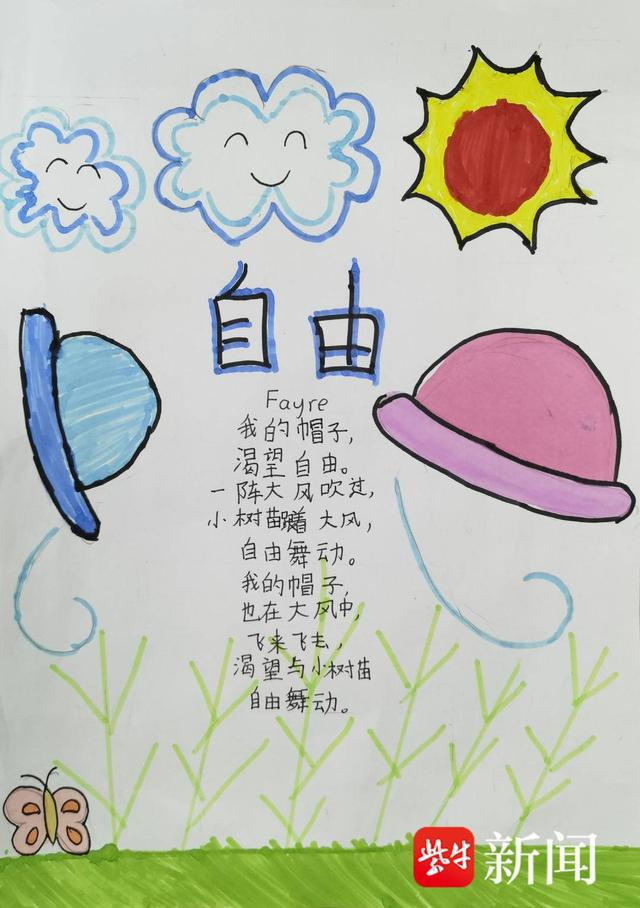 自由
Fayre
我的帽子,
渴望自由。
一阵大风吹过,
小树苗跟着大风,
自由舞动。
我的帽子,
也在大风中,
飞来飞去,
渴望与小树苗
自由舞动。
紫牛 新闻